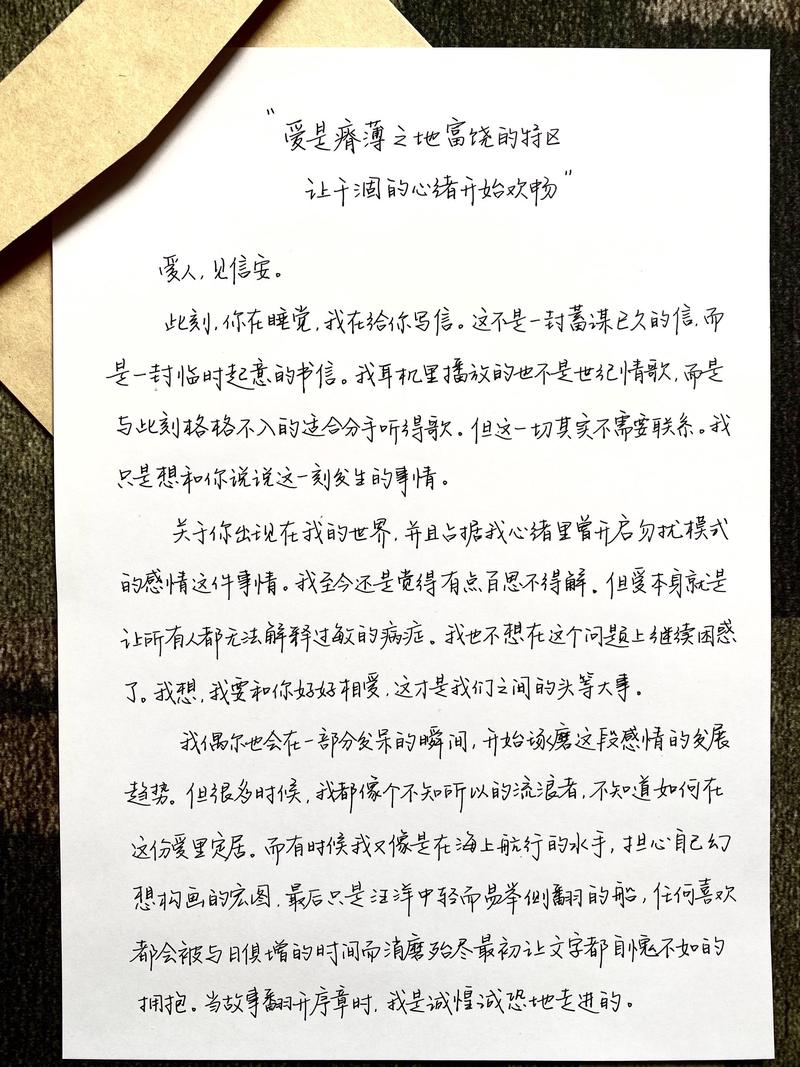 “爱是瘠薄之地富饶的特区
让干涸的心绪开始欢畅”
爱人，见信安。
此刻，你在睡觉，我在给你写信。这不是一封蓄谋已久的信，而
是一封临时起意的书信。我耳机里播放的也不是世纪情歌，而是
与此刻格格不入的适合分手听得歌。但这一切其实不需要联系。我
只是想和你说说这一刻发生的事情。
关于你出现在我的世界，并且占据我心绪里曾开启勿扰模式
的感情这件事情。我至今还是觉得有点百思不得解。但爱本身就是
让所有人都无法解释过敏的病症。我也不想在这个问题上继续困惑
了。我想，我要和你好好相爱，这才是我们之间的头等大事。
我偶尔也会在一部分发呆的瞬间，开始琢磨这段感情的发展
趋势。但很多时候，我都像个不知所以的流浪者，不知道如何在
这份爱里定居。而有时候我又像是在海上航行的水手，担心自己幻
想构画的宏图，最后只是汪洋中轻而易举侧翻的船，任何喜欢
都会被与日俱增的时间而消磨殆尽最初让文字都自愧不如的
拥抱。当故事翻开序章时，我是诚惶诚恐地走进的。